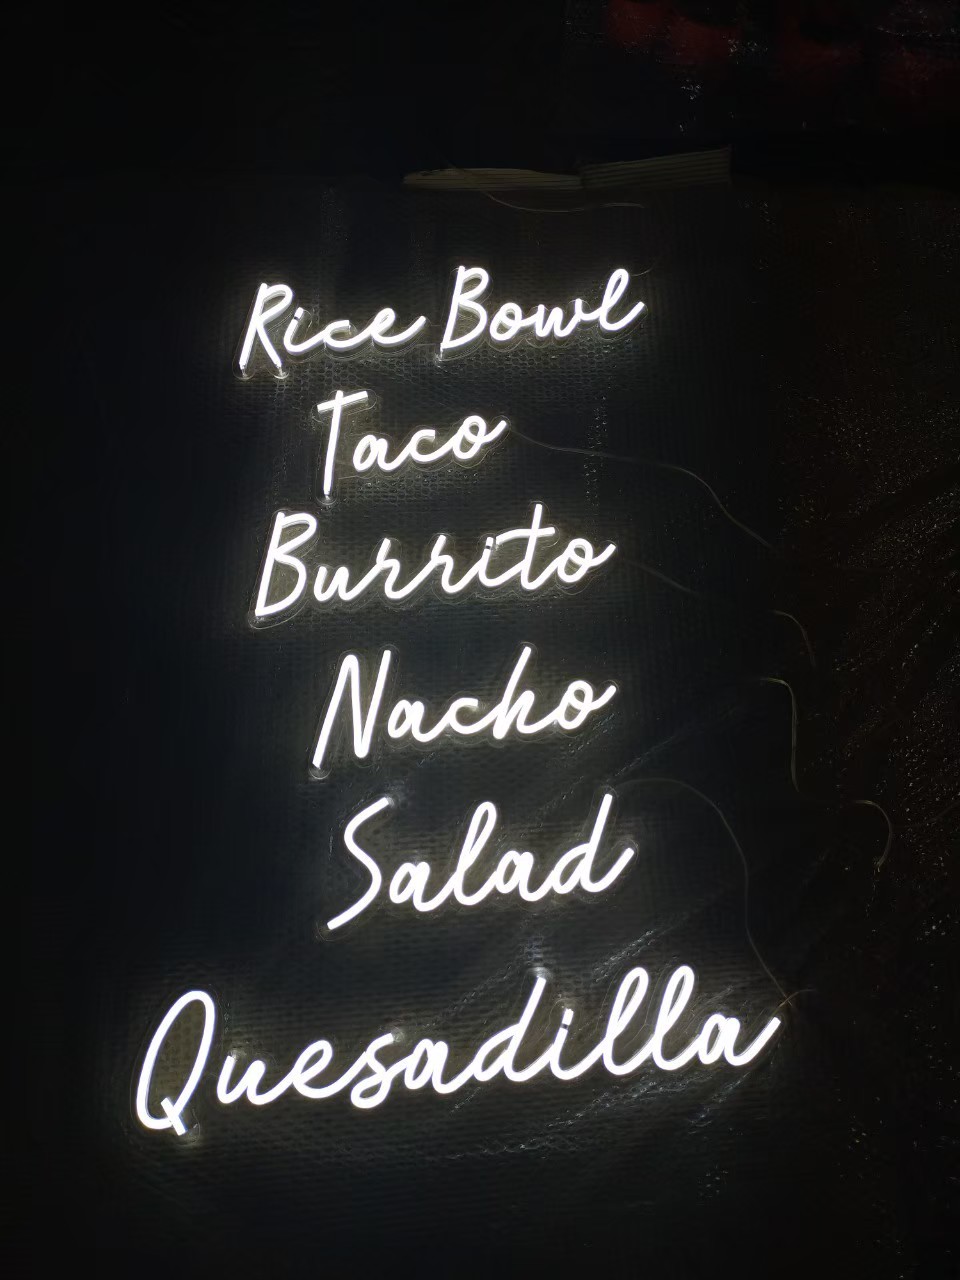 Rice Bowl
Taco
Burrito
Nacho
Salad
Quesadilla